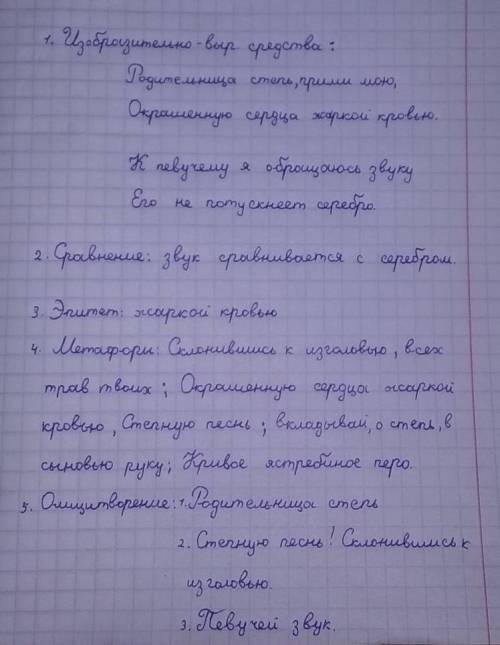 1. Изобразительно-выр средства:
Родительница степь, прими мою,
Окрашенную сердца жаркой кровью.
К певучему я обращаюсь звуку
Его не потускнеет серебро.
2. Сравнение: звук сравнивается с серебром.
3. Эпитет: жаркой кровью
4. Метафоры: Склонившись к изголовью, всех
трав твоих; Окрашенную сердца жаркой
кровью, Степную песнь; вкладывай, о степь, в
сыновью руку; Кривое ястребиное перо.
5. Олицитворение: 1. Родительница степь
2. Степную песнь! Склонившись к
изголовью.
3. Певучей звук.